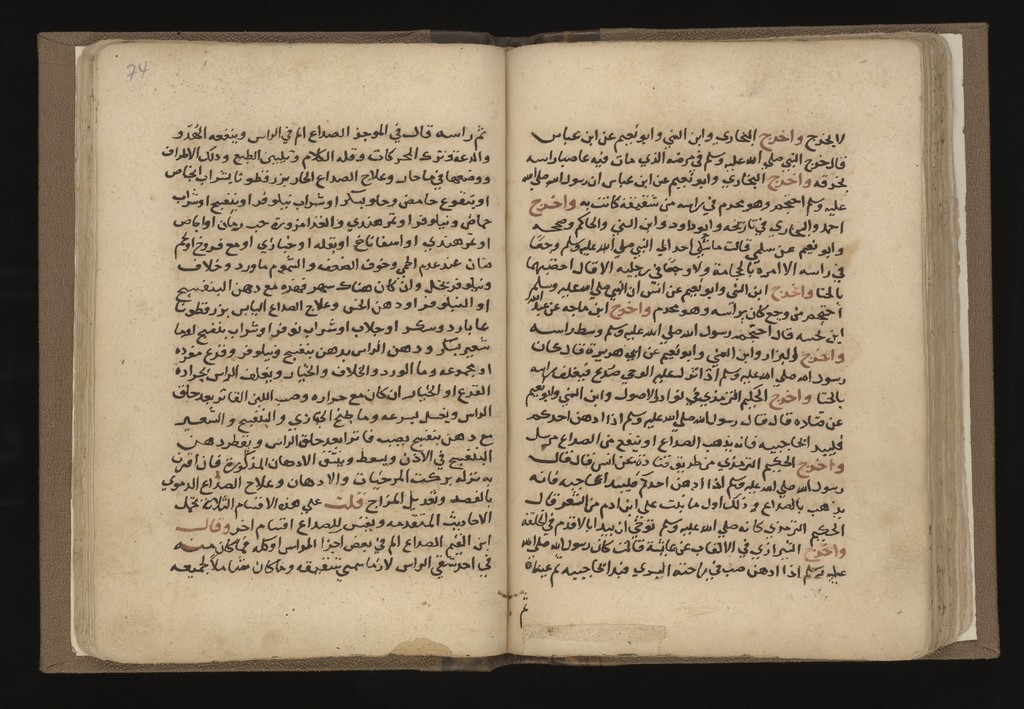 لا يخرج واخرج البخاري وابن السني وابو نعيم عن ابن عباس
قال خرج النبي صلى الله عليه وسلم في مرضه الذي مات فيه عاصبا راسه
بخرقة واخرج البخاري وابو نعيم عن ابن عباس ان رسول الله صلى الله
عليه وسلم احتجم وهو محرم في راسه من شقيقة كانت به واخرج
احمد والبخاري في تاريخه وابو داود وابن السني والحاكم وصححه
وابو نعيم عن سلمى قالت ما شكى احد الى النبي صلى الله عليه وسلم وجعا
في راسه الا امره بالحجامة ولا وجعا في رجليه الا قال اخضبهما
بالحنا واخرج ابن السني وابو نعيم عن انس ان النبي صلى الله عليه وسلم
احتجم من وجع كان براسه وهو محرم واخرج ابن ماجه عن عبد الله
ابن بحينه قال احتجم رسول الله صلى الله عليه وسلم وسط راسه
واخرج البزار وابن السني وابو نعيم عن ابي هريرة قال كان
رسول الله صلى الله عليه وسلم اذا نزل عليه الوحي صدع فيغلف راسه
بالحنا واخرج الحكيم الترمذي في نوادر الاصول وابن السني وابو نعيم
عن قتاده قال قال رسول الله صلى الله عليه وسلم اذا ادهن احدكم
فليبدا بحاجبيه فانه يذهب الصداع او ينفع من الصداع مرسل
واخرج الحكيم الترمذي من طريق قتادة عن انس قال قال
رسول الله صلى الله عليه وسلم اذا ادهن احدكم فليبدا بحاجبيه فانه
يذهب بالصداع وذلك اول ما ينبت على ابن ادم من الشعر قال
الحكيم الترمذي كانه صلى الله عليه وسلم توخى ان يبدا بالاقدم في الخلقة
واخرج الشيرازي في الالقاب عن عائشة قالت كان رسول الله صلى الله
عليه وسلم اذا ادهن صب في راحته اليسرى فبدا بحاجبيه ثم عينيه
ثم
74
ثم راسه قال في الموجز الصداع الم في الراس وينفعه الهدو
والدعة وترك المحركات وقلة الكلام وتليين الطبع ودلك الاطراف
ووضعها في ماء حار وعلاج الصداع الحار بزر قطونا بشراب اجاص
او بنقوع حامض وحلو بسكر او شراب نيلوفر او بنفسج او شراب
حماض ونيلوفر او تمر هندي والغذا مزورة حب رمان او اجاص
او تمر هندي او اسفاناخ او بقلة او خبازي او مع فروج او لحم
ضان عند عدم الحمى وخوف الضعف والشموم ماورد وخلاف
ونيلوفر بخل وان كان هناك سهر فبغيره مع دهن البنفسج
او النيلوفر او دهن الخس وعلاج الصداع اليابس بزر قطونا
بما بارد وسكر او جلاب او شراب نوفر او شراب بنفسج او ما
شعير بسكر ودهن الراس بدهن بنفسج ونيلوفر وقرع مفرده
او مجموعة وما الورد والخلاف والخيار ويغلف الراس بجرادة
القرع او الخيار ان كان مع حرارة وصب اللبن الفاتر بعد حلق
الراس ويغسل بسرعة وما طبخ الخبازي والبنفسج والشعير
مع دهن بنفسج يصبه فاترا بعد حلق الراس ويقطر دهن
البنفسج في الاذن ويسعط وينشق الادهان المذكورة فان اقترن
به نزلة تركت المرخيات والادهان وعلاج الصداع الدموي
بالفصد وتعديل المزاج قلت على هذه الاقسام الثلاثة تحمل
الاحاديث المتقدمة وبقي للصداع اقسام اخر وقال
ابن القيم الصداع الم في بعض اجزا الراس او كله فما كان منه
في احد شقي الراس لازما سمي شقيقة وما كان شاملا لجميعه